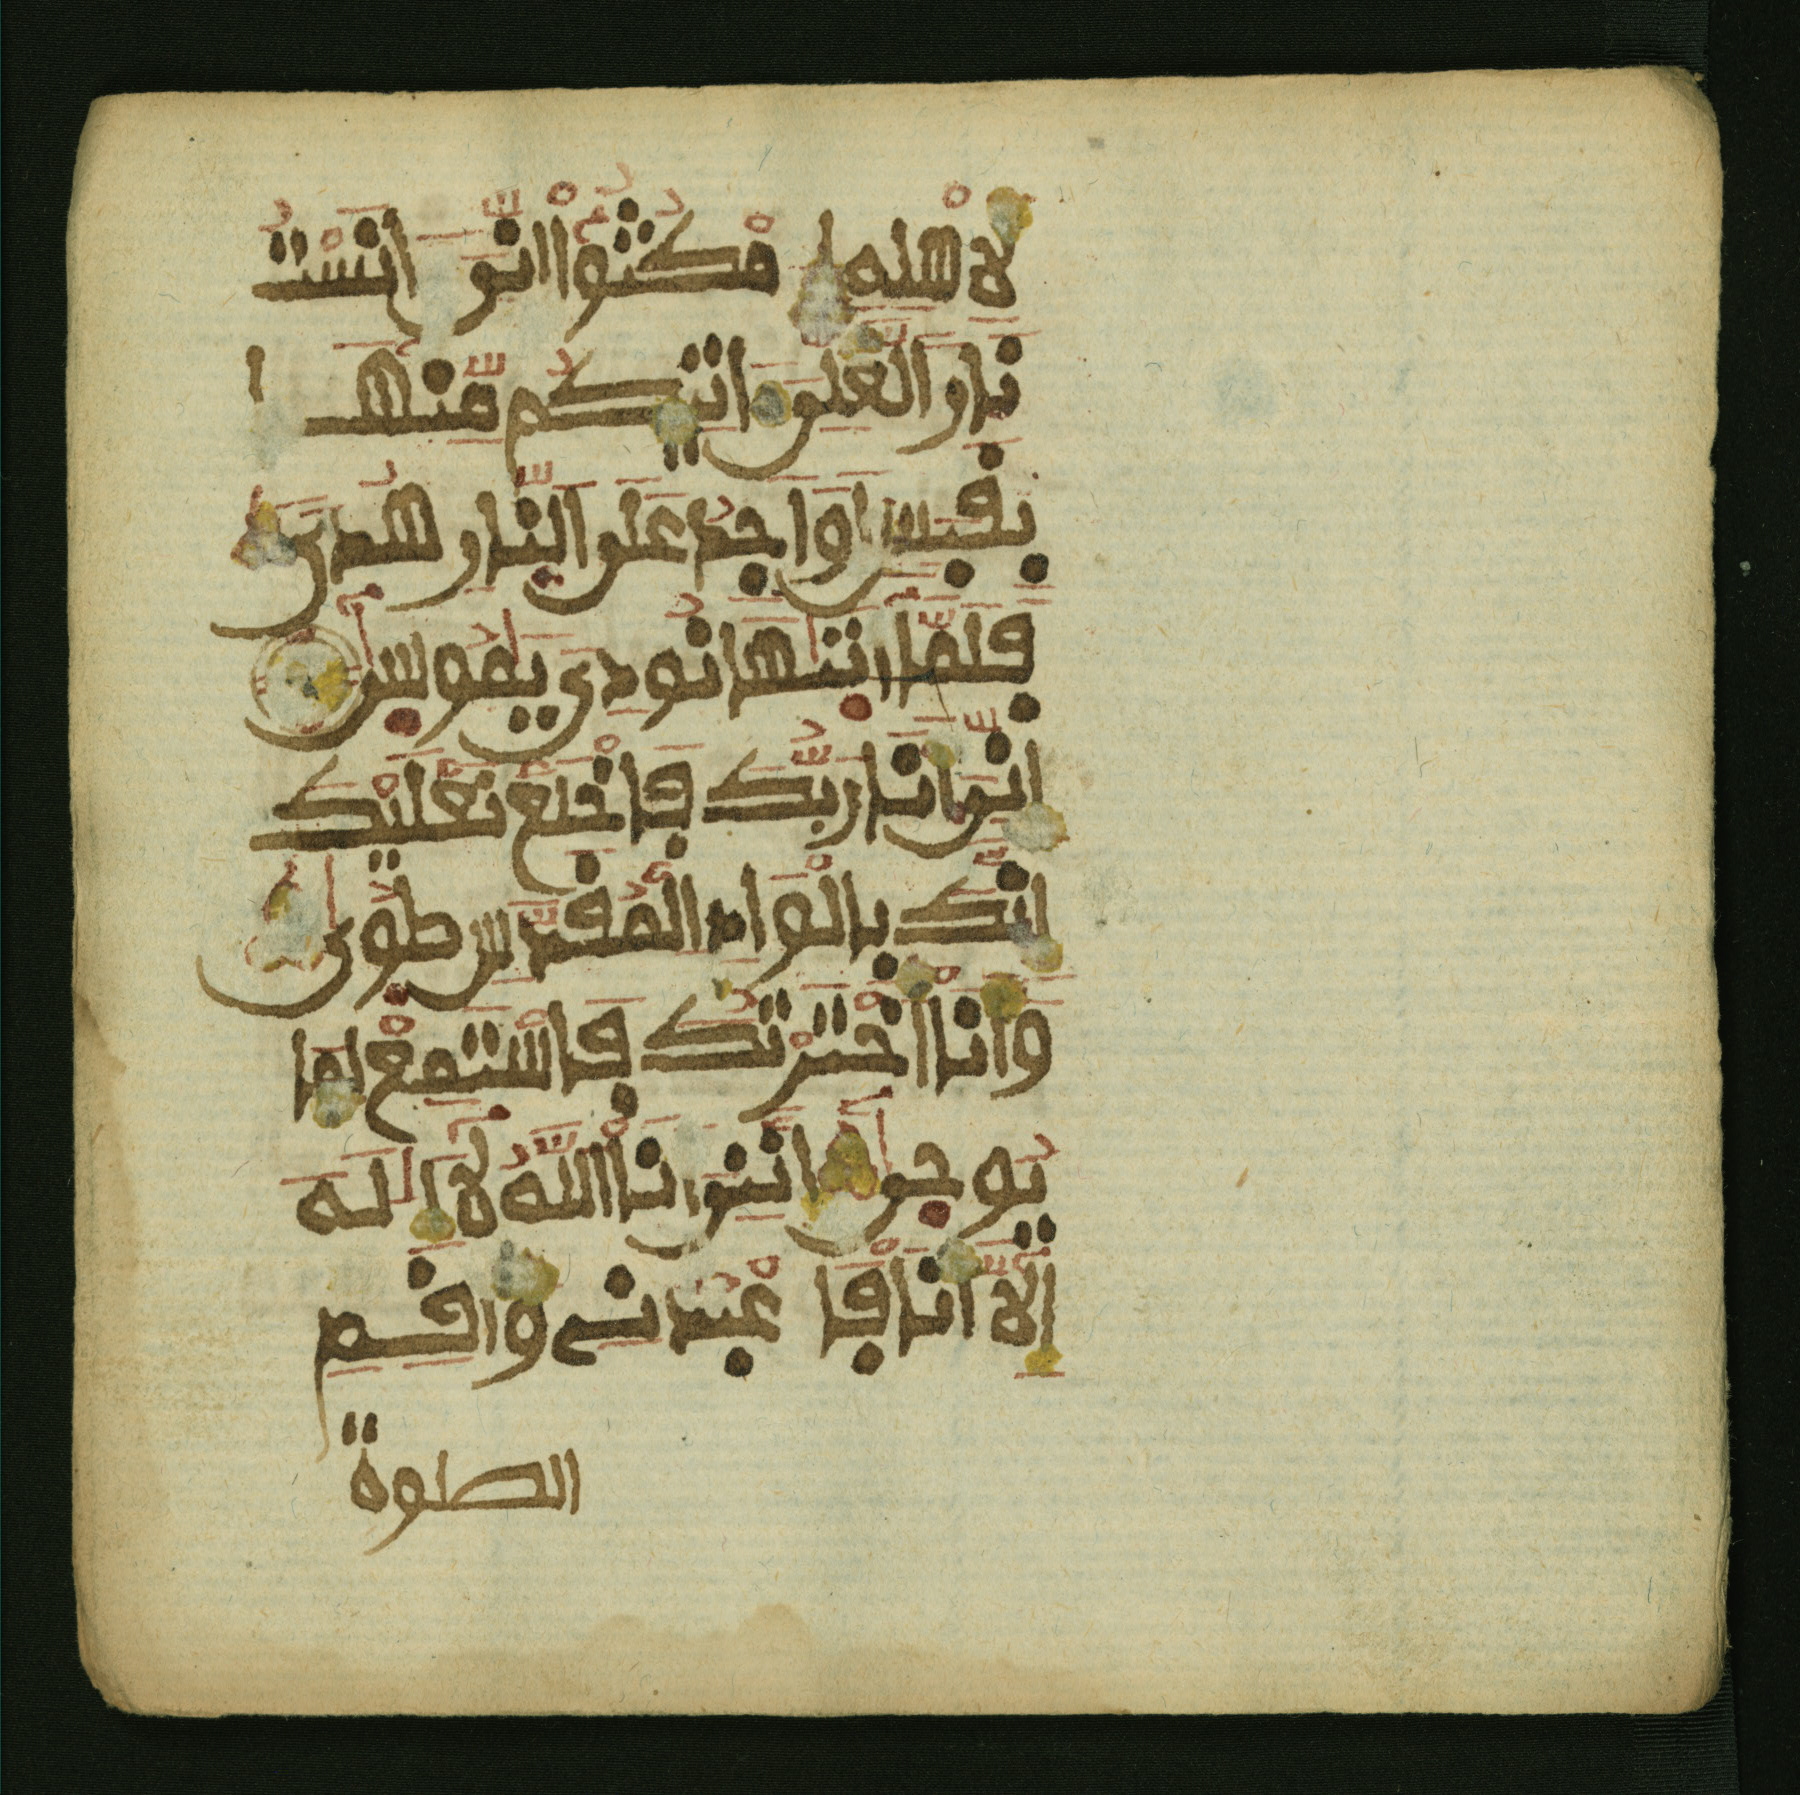 لِأَهْلِهِ اِمْكُثُوٓاْ إِنِّيَ ءَانَسْتُ
نَارا لَّعَلِّيَ ءَاتِيكُم مِّنْهَا
بِقَبَسٍ اَوَ اَجِدُ عَلَى اَلنّارِ هُدىٗ
فَلَمَّآ أَتَيٰهَا نُودِيَ يَٰمُوسَىٰٓ
إِنِّيَ أَنَا رَبُّكَ فَاخْلَعْ نَعْلَيْكَ
إِنَّكَ بِالْوَادِ الْمُقَدَّسِ طُوىٰ
وَأَنَا اَخْتَرْتُكَ فَاسْتَمِعْ لِمَا
يُوحَىٰٓ إِنَّنِيَ أَنَا اللَّهُ لَآ إِلَٰهَ
إِلَّآ أَنَا فَاعْبُدْنِي وَأَقِمِ
الصلوة